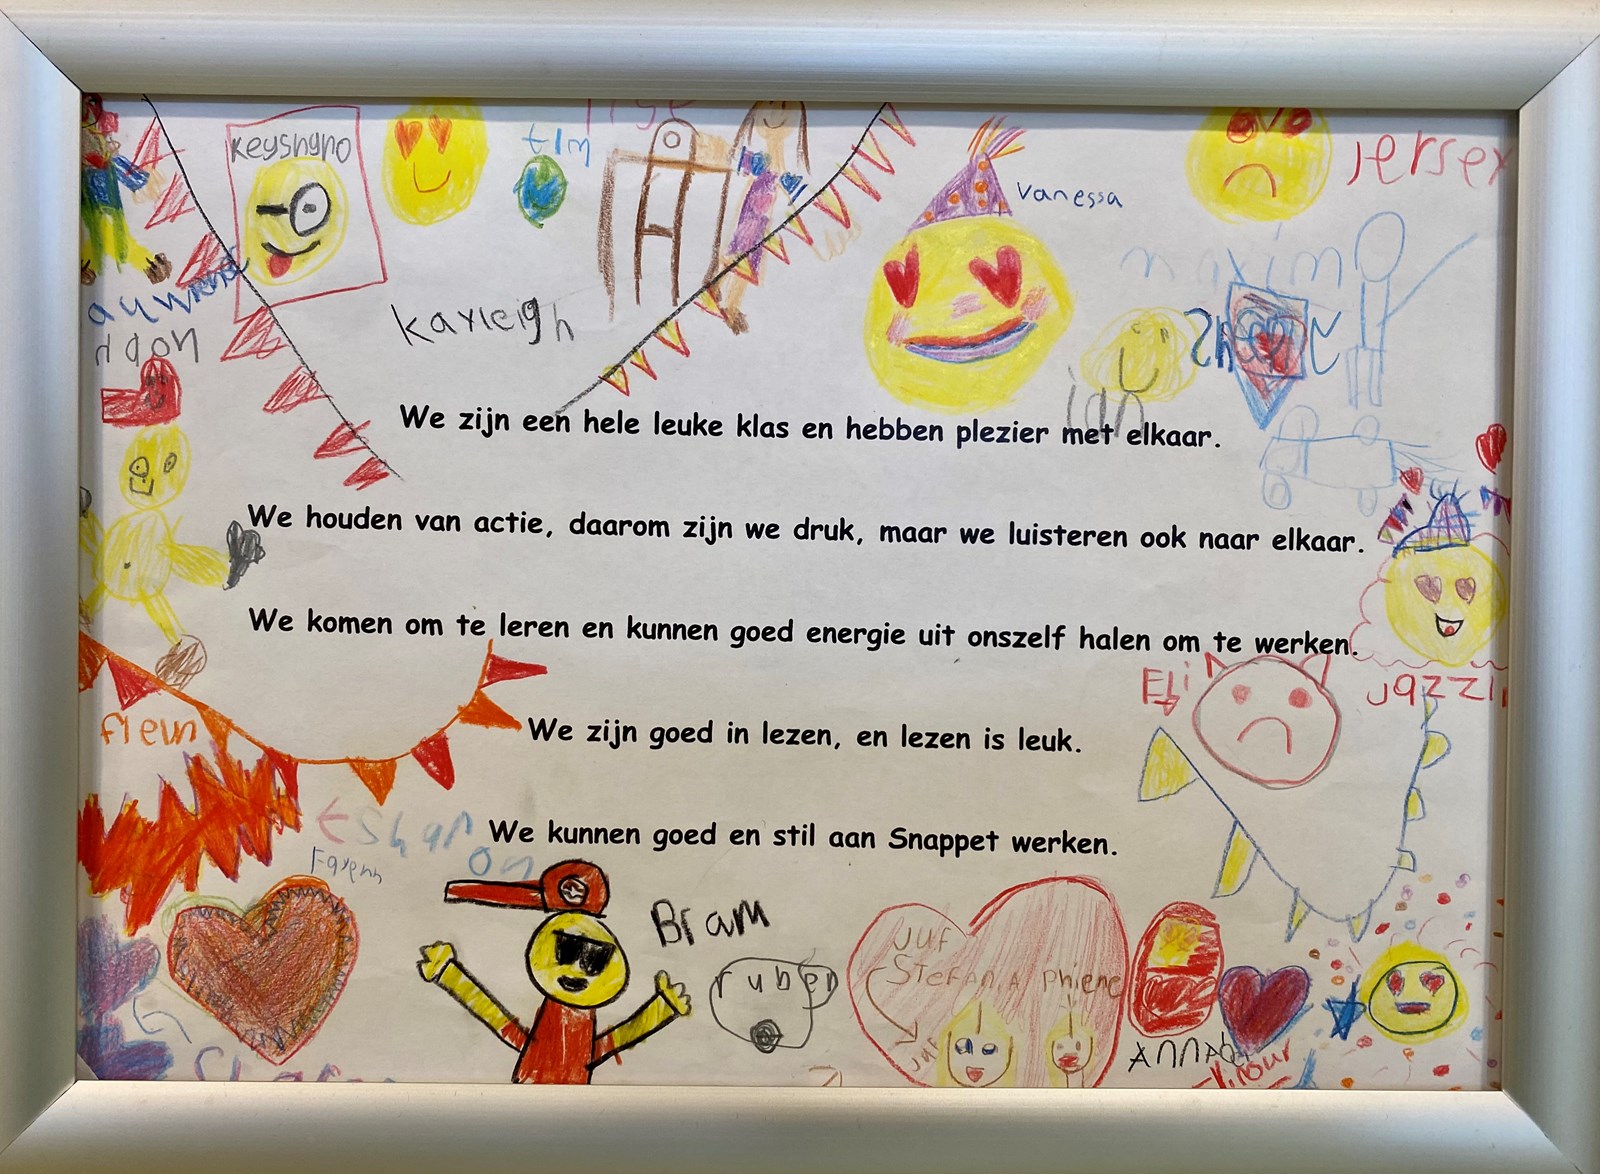 Keyshyno
tim
Vanessa
jersey
maxim
Kayleigh
ian
We zijn een hele leuke klas en hebben plezier met elkaar.
We houden van actie, daarom zijn we druk, maar we luisteren ook naar elkaar.
We komen om te leren en kunnen goed energie uit onszelf halen om te werken.
Eli
Jazzi
flein
We zijn goed in lezen, en lezen is leuk.
Esharon
We kunnen goed en stil aan Snappet werken.
Bram
ruben
juf
Stefania phiene
juf
ANNAbel